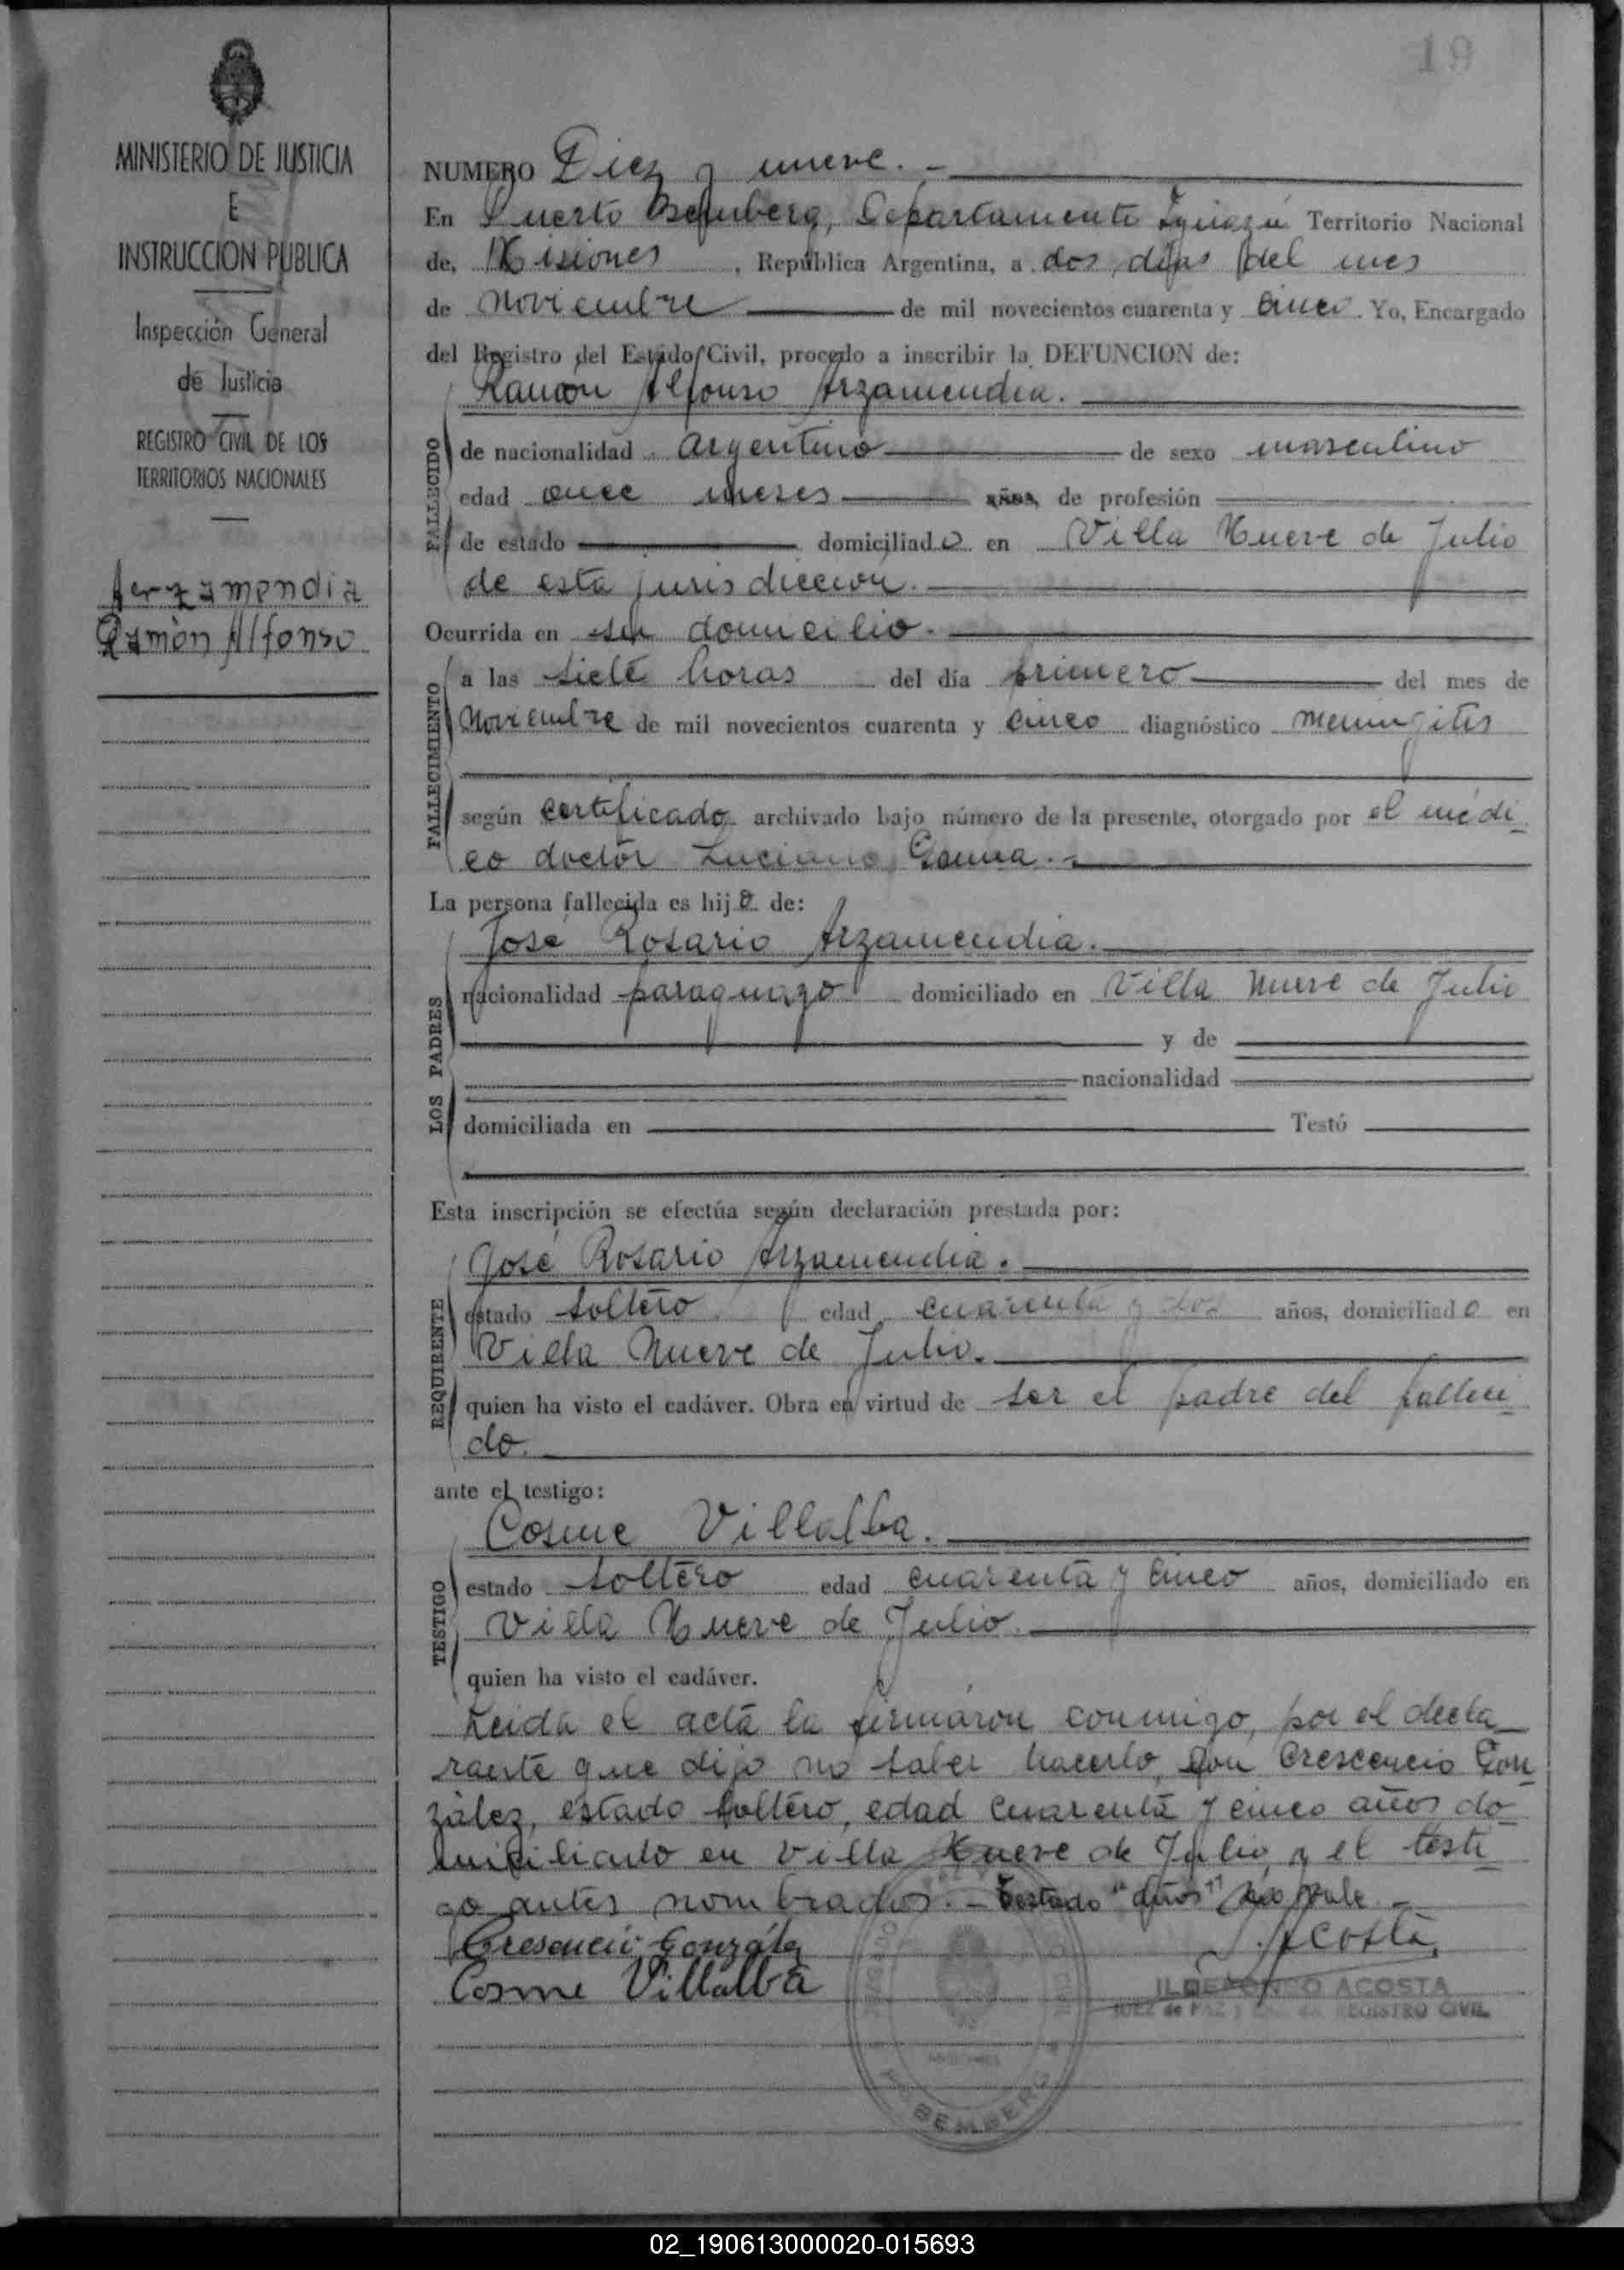 19
MINISTERIO DE JUSTICIA
E
INSTRUCCION PUBLICA
Inspección General
de Justicia
REGISTRO CIVIL DE LOS
TERRITORIOS NACIONALES
Arzamendia
Ramón Alfonso
NUMERO Diez y nueve.-
En Puerto Bemberg, Departamento Iguazú Territorio Nacional
de, Misiones, República Argentina, a dos días del mes
de Noviembre de mil novecientos cuarenta y cinco. Yo, Encargado
del Registro del Estado Civil, procedo a inscribir la DEFUNCION de:
Ramón Alfonso Arzamendia.
FALLECIDO
de nacionalidad Argentino de sexo masculino
edad once meses años, de profesión
de estado domiciliado en Villa Nueve de Julio
de esta jurisdicción.
Ocurrida en su domicilio.
FALLECIMIENTO
a las siete horas del día primero del mes de
Noviembre de mil novecientos cuarenta y cinco diagnóstico meningitis
según certificado archivado bajo número de la presente, otorgado por el médi
co doctor Luciano
La persona fallecida es hijo de:
LOS PADRES
José Rosario Arzamendia.
nacionalidad paraguayo domiciliado en Villa Nueve de Julio
y de
nacionalidad
domiciliada en Testó
Esta inscripción se efectúa según declaración prestada por:
REQUIRENTE
José Rosario Arzamendia.
estado soltero edad cuarenta y dos años, domiciliado en
Villa Nueve de Julio.
quien ha visto el cadáver. Obra en virtud de ser el padre del falleci
do.
ante el testigo:
TESTIGO
Cosme Villalba.
estado soltero edad cuarenta y cinco años, domiciliado en
Villa Nueve de Julio.
quien ha visto el cadáver.
Leida el acta la firmaron conmigo, por el decla
rante que dijo no saber hacerlo, don Crescencio Gon
zález, estado soltero, edad cuarenta y cinco años do
miciliado en Villa Nueve de Julio, y el testi
go antes nombrados.- Testado "años" No vale.-
Cresencio González
Cosme Villalba
I. Acosta
ILDEFONSO ACOSTA
JUEZ de PAZ REGISTRO CIVIL
BEMBERG
02_190613000020-015693